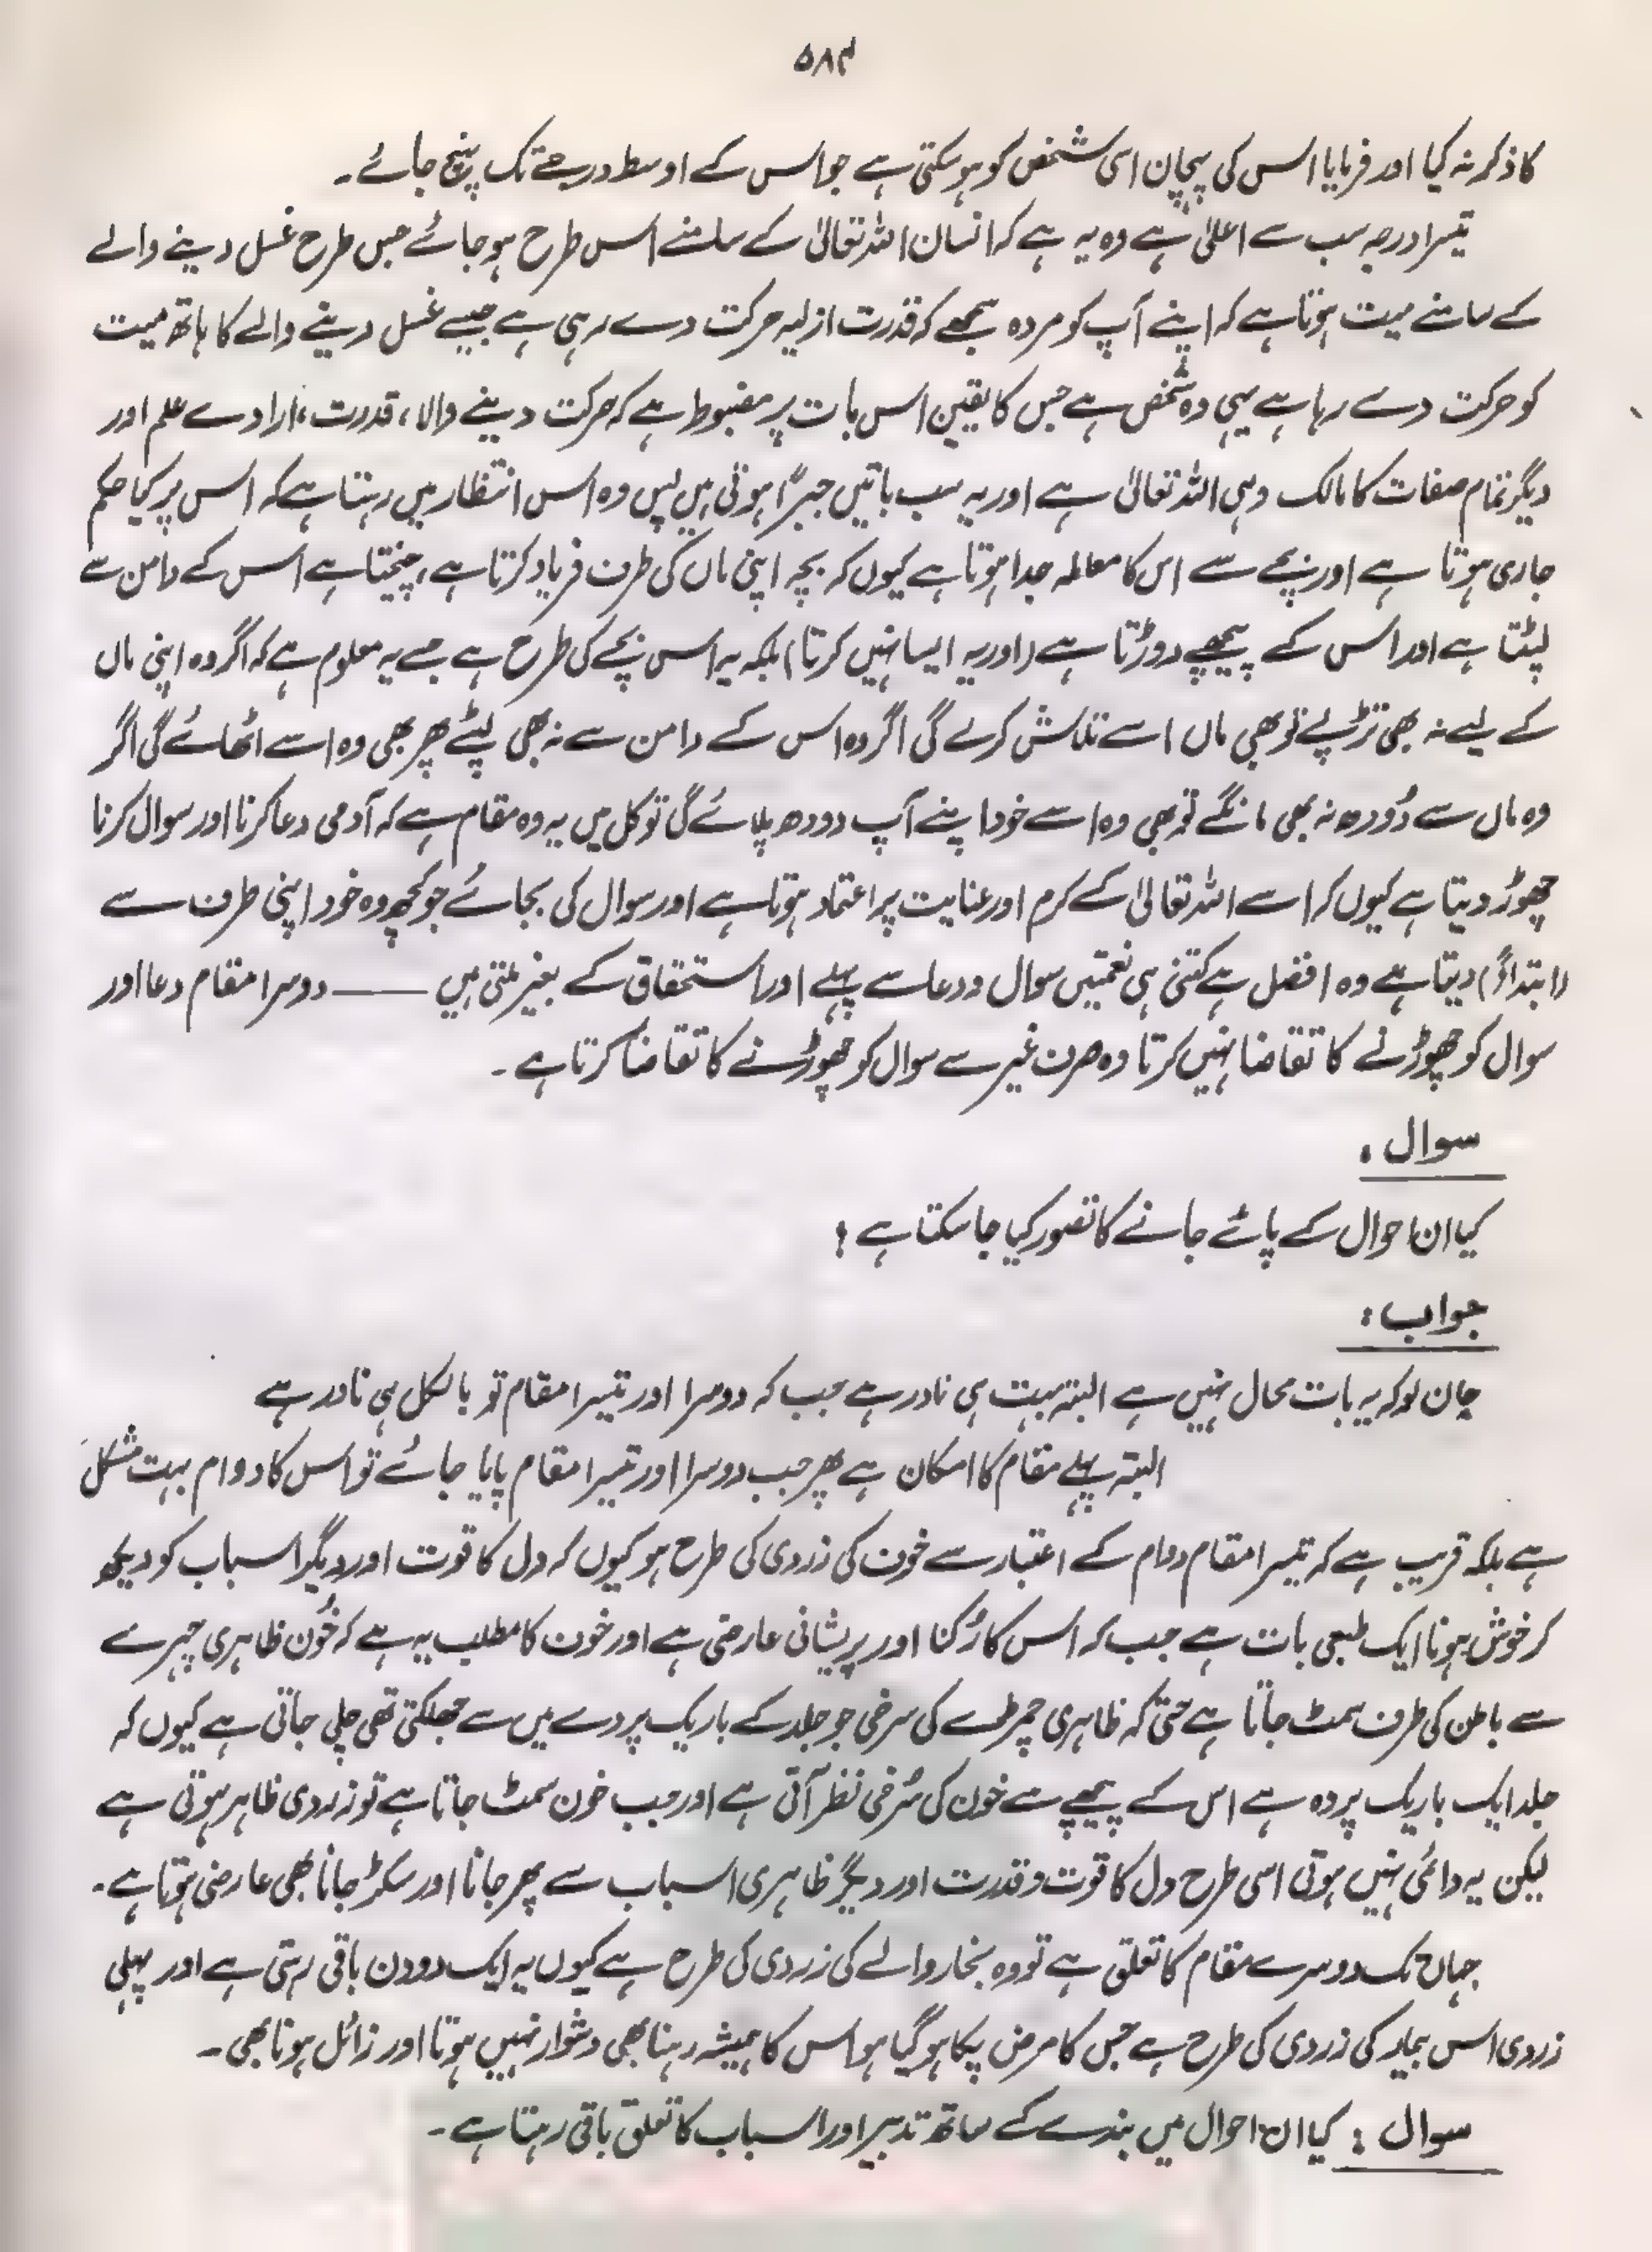 ۵۸۴
کا ذکر نہ کیا اور فرمایا اس کی پہچان اسی شخص کو ہو سکتی ہے جو اس کے اوسط درجے تک پہنچ جائے۔
تیسرا درجہ سب سے اعلیٰ ہے وہ یہ ہے کہ انسان اللہ تعالیٰ کے سامنے اس طرح ہو جائے جس طرح غسل دینے والے
کے سامنے میت ہوتا ہے کہ اپنے آپ کو مردہ سمجھے کہ قدرت ازلیہ حرکت دے رہی ہے جیسے غسل دینے والے کا ہاتھ میت
کو حرکت دے رہا ہے یہی وہ شخص ہے جس کا یقین اس بات پر مضبوط ہے کہ حرکت دینے والا، قدرت، ارادے علم اور
دیگر تمام صفات کا مالک وہی اللہ تعالیٰ ہے اور یہ سب باتیں جبرًا ہوتی ہیں پس وہ اس انتظار میں رہتا ہے کہ اس پر کیا حکم
جاری ہوتا ہے اور بچے سے اس کا معاملہ جدا ہوتا ہے کیوں کہ بچہ اپنی ماں کی طرف فریاد کرتا ہے، چیختا ہے اس کے دامن سے
لپٹتا ہے اور اس کے پیچھے دوڑتا ہے (اور یہ ایسا نہیں کرتا) بلکہ یہ اس بچے کی طرح ہے جسے یہ معلوم ہے کہ اگر وہ اپنی ماں
کے لیے نہ بھی تڑپے تو بھی ماں اسے تلاش کرلے گی اگر وہ اس کے دامن سے نہ بھی لپٹے پھر بھی وہ اسے اٹھائے گی اگر
وہ ماں سے دُودھ نہ بھی مانگے تو بھی وہ اسے خود اپنے آپ دودھ پلائے گی توکل میں یہ وہ مقام ہے کہ آدمی دعا کرنا اور سوال کرنا
چھوڑ دیتا ہے کیوں کہ اسے اللہ تعالیٰ کے کرم اور عنایت پر اعتماد ہوتا ہے اور سوال کی بجائے جو کچھ وہ خود اپنی طرف سے
(ابتداءً) دیتا ہے وہ افضل ہے کتنی ہی نعمتیں سوال و دعا سے پہلے اور استحقاق کے بغیر ملتی ہیں ——— دوسرا مقام دعا اور
سوال کو چھوڑنے کا تقاضا نہیں کرتا وہ صرف غیر سے سوال کو چھوڑنے کا تقاضا کرتا ہے۔
سوال :
کیا ان احوال کے پائے جانے کا تصور کیا جا سکتا ہے ؟
جواب :
جان لو کہ یہ بات محال نہیں ہے البتہ بہت ہی نادر ہے جب کہ دوسرا اور تیسرا مقام تو بالکل ہی نادر ہے
البتہ پہلے مقام کا امکان ہے پھر جب دوسرا اور تیسرا مقام پایا جائے تو اس کا دوام بہت مشکل
ہے بلکہ قریب ہے کہ تیسرا مقام دوام کے اعتبار سے خون کی زردی کی طرح ہو کیوں کہ دل کا قوت اور دیگر اسباب کو دیکھ
کر خوش ہونا ایک طبعی بات ہے جب کہ اس کا رُکنا اور پریشانی عارضی ہے اور خون کا مطلب یہ ہے کہ خُون ظاہری چہرے
سے باطن کی طرف سمٹ جاتا ہے حتیٰ کہ ظاہری چمڑے کی سرخی جو جلد کے باریک پردے میں سے جھلکتی تھی چلی جاتی ہے کیوں کہ
جلد ایک باریک پردہ ہے اس کے پیچھے سے خون کی سُرخی نظر آتی ہے اور جب خون سمٹ جاتا ہے تو زردی ظاہر ہوتی ہے
لیکن یہ دائمی نہیں ہوتی اسی طرح دل کا قوت و قدرت اور دیگر ظاہری اسباب سے پھر جانا اور سکڑ جانا بھی عارضی ہوتا ہے۔
جہاں تک دوسرے مقام کا تعلق ہے تو وہ بخار والے کی زردی کی طرح ہے کیوں یہ ایک دو دن باقی رہتی ہے اور پہلی
زردی اس بیمار کی زردی کی طرح ہے جس کا مرض پکا ہو گیا ہو اس کا ہمیشہ رہنا بھی دشوار نہیں ہوتا اور زائل ہونا بھی۔
سوال : کیا ان احوال میں بندے کے ساتھ تدبیر اور اسباب کا تعلق باقی رہتا ہے۔